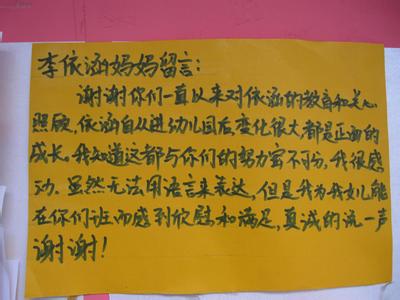 李依涵妈妈留言:
谢谢你们一直以来对依涵的教育和关心
照顾,依涵自从进幼儿园后变化很大都是正面的
成长。我知道这都与你们的努力密不可分,我很感
动。虽然无法用语言来表达,但是我为我女儿能
在你们班而感到欣慰和满足,真诚的说一声
谢谢!